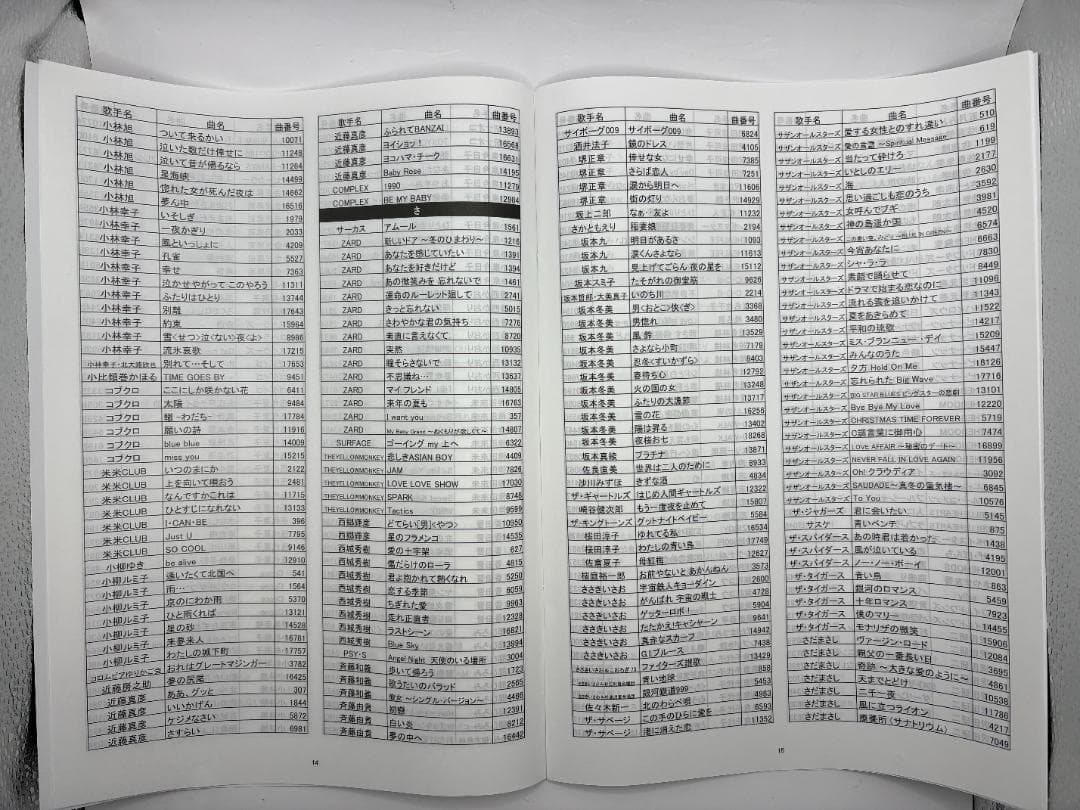 歌手名 曲名 曲番号
小林旭 ついて来るかい 10071
小林旭 泣いた数だけ倖せに 11248
小林旭 泣いて昔が帰るなら 11264
小林旭 星海峡 14499
小林旭 惚れた女が死んだ夜は 14662
小林旭 夢ん中 16516
小林幸子 いそしぎ 1979
小林幸子 一夜かぎり 2033
小林幸子 風といっしょに 4209
小林幸子 孔雀 5527
小林幸子 幸せ 7363
小林幸子 泣かせやがって このやろう 11311
小林幸子 ふたりはひとり 13744
小林幸子 別離 17643
小林幸子 約束 15964
小林幸子 雪<せつ>泣<ない>夜<よ> 8996
小林幸子 流氷哀歌 17215
小林幸子・北大路欣也 別れて…そして 17653
小比類巻かほる TIME GOES BY 9451
コブクロ ここにしか咲かない花 6411
コブクロ 太陽 9484
コブクロ 轍 -わだち- 17784
コブクロ 願いの詩 11916
コブクロ blue blue 14009
コブクロ miss you 15215
米米CLUB いつのまにか 2122
米米CLUB 上を向いて唄おう 2481
米米CLUB なんですかこれは 11715
米米CLUB ひとすじになれない 13133
米米CLUB I・CAN・BE 396
米米CLUB Just U 7795
米米CLUB SO COOL 9146
小柳ゆき be alive 12910
小柳ルミ子 逢いたくて北国へ 541
小柳ルミ子 雨… 1564
小柳ルミ子 京のにわか雨 5370
小柳ルミ子 ひと雨くれば 13121
小柳ルミ子 星の砂 14528
小柳ルミ子 来夢来人 16781
小柳ルミ子 わたしの城下町 17757
コロムビアゆりかご会 おれはグレートマジンガー 3782
近藤房之助 夢の尻尾 16425
近藤真彦 ああ、グッと 307
近藤真彦 いいかげん 1844
近藤真彦 ケジメなさい 5872
近藤真彦 さすらい 6981
歌手名 曲名 曲番号
近藤真彦 ふられてBANZAI 13893
近藤真彦 ヨイショ! 16568
近藤真彦 ヨコハマ・チーク 16631
近藤真彦 Baby Rose 14195
COMPLEX 1990 11279
COMPLEX BE MY BABY 12984
さ
サーカス アムール 1561
ZARD 新しいドア ~冬のひまわり~ 1216
ZARD あなたを感じていたい 1391
ZARD あなたを好きだけど 1394
ZARD あの微笑みを 忘れないで 1461
ZARD 運命のルーレット廻して 2741
ZARD きっと忘れない 5015
ZARD さわやかな君の気持ち 7276
ZARD 素直に言えなくて 8720
ZARD 突然 10935
ZARD 瞳そらさないで 13132
ZARD 不思議ね… 13637
ZARD マイ フレンド 14805
ZARD 来年の夏も 16763
ZARD I want you 357
ZARD My Baby Grand ~ぬくもりが欲しくて~ 14807
SURFACE ゴーイング my 上へ 6322
THEYELLOWMONKEY 悲しきASIAN BOY 4409
THEYELLOWMONKEY JAM 7826
THEYELLOWMONKEY LOVE LOVE SHOW 17030
THEYELLOWMONKEY SPARK 8748
THEYELLOWMONKEY Tactics 9599
西郷輝彦 どてらい[男]<やつ> 10950
西郷輝彦 星のフラメンコ 14535
西城秀樹 愛の十字架 627
西城秀樹 傷だらけのローラ 4815
西城秀樹 君よ抱かれて熱くなれ 5250
西城秀樹 恋する季節 6059
西城秀樹 ちぎれた愛 9963
西城秀樹 走れ正直者 12328
西城秀樹 ラストシーン 16821
西城秀樹 Blue Sky 13994
PSY・S Angel Night 天使のいる場所 3004
斉藤和義 歩いて帰ろう 1723
斉藤和義 歌うたいのバラッド 2565
斉藤和義 彼女 ~シングル・バージョン~ 4496
斉藤由貴 初戀 12391
斉藤由貴 白い炎 8212
斉藤由貴 夢の中へ 16442
14
歌手名 曲名 曲番号
サイボーグ009 サイボーグ009 6824
酒井法子 鏡のドレス 4105
堺正章 倖せな女 7385
堺正章 さらば恋人 7251
堺正章 涙から明日へ 11606
堺正章 街の灯り 14929
坂上二郎 なぁ…友よ 11232
さかともえり 稲妻娘 2194
坂本九 明日があるさ 1093
坂本九 涙くんさよなら 11613
坂本九 見上げてごらん 夜の星を 15112
坂本スミ子 たそがれの御堂筋 9626
坂本哲郎・大美真子 いのち川 2214
坂本冬美 男<おとこ>侠<ぎ> 3368
坂本冬美 男惚れ 3480
坂本冬美 風鈴 13529
坂本冬美 さよなら小町 7179
坂本冬美 忍冬<すいかずら> 8403
坂本冬美 春待ち心 12792
坂本冬美 火の国の女 13248
坂本冬美 ふたりの大漁節 13717
坂本冬美 雪の花 16259
坂本冬美 陽は昇る 13402
坂本冬美 夜桜お七 18268
坂本真綾 プラチナ 13871
佐良直美 世界は二人のために 8933
沙川みずほ きずな酒 4834
ザ・ギャートルズ はじめ人間ギャートルズ 12322
崎谷健次郎 もう一度夜を止めて 15807
ザ・キングトーンズ グッドナイトベイビー 5584
桜田淳子 ゆれてる私 16534
桜田淳子 わたしの青い鳥 17749
佐倉夏子 母紅梅 12627
桜庭裕一郎 お前やないと あかんねん 3573
ささきいさお 宇宙鉄人キョーダイン 2600
ささきいさお がんばれ 宇宙の戦士 4728
ささきいさお ゲッターロボ! 5904
ささきいさお たたかえ!キャシャーン 9641
ささきいさお 真赤なスカーフ 14942
ささきいさお G1ブルース 7438
ファイターズ讃歌 13429
青い地球 859
銀河鉄道999 5453
佐々木新一 北のわらべ唄 4963
ザ・サベージ この手のひらに愛を 6593
ザ・サベージ 渚に消えた恋 11352
歌手名 曲名 曲番号
サザンオールスターズ 愛する女性とのすれ違い 510
サザンオールスターズ 愛の言霊 ~Spiritual Message~ 619
サザンオールスターズ 当たって砕けろ 1199
サザンオールスターズ いとしのエリー 2177
サザンオールスターズ 海 2630
サザンオールスターズ 思い過ごしも恋のうち 3592
サザンオールスターズ 女呼んでブギ 3981
サザンオールスターズ 神の島遥か国 4520
サザンオールスターズ 6574
サザンオールスターズ 今宵あなたに 6663
サザンオールスターズ シャ・ラ・ラ 7830
サザンオールスターズ 素顔で踊らせて 8449
サザンオールスターズ ドラマで始まる恋なのに 11096
サザンオールスターズ 流れる雲を追いかけて 11343
サザンオールスターズ 夏をあきらめて 11522
サザンオールスターズ 平和の琉歌 14217
サザンオールスターズ ミス・ブランニュー・デイ 15209
サザンオールスターズ みんなのうた 15447
サザンオールスターズ 夕方 Hold On Me 18126
サザンオールスターズ 忘れられた Big Wave 17716
サザンオールスターズ BIG STAR BLUES ビッグスターの悲劇 13101
サザンオールスターズ Bye Bye My Love 12220
サザンオールスターズ CHRISTMAS TIME FOREVER 5719
サザンオールスターズ C調言葉に御用心 7474
サザンオールスターズ LOVE AFFAIR ~秘密のデート~ 16899
サザンオールスターズ NEVER FALL IN LOVE AGAIN 11956
サザンオールスターズ Oh! クラウディア 3092
サザンオールスターズ SAUDADE~真冬の蜃気楼~ 6845
サザンオールスターズ To You 10576
ザ・ジャガーズ 君に会いたい 5145
サスケ 青いベンチ 875
ザ・スパイダース あの時君は若かった 1438
ザ・スパイダース 風が泣いている 4195
ザ・スパイダース ノー・ノー・ボーイ 12001
ザ・タイガース 青い鳥 863
ザ・タイガース 銀河のロマンス 5459
ザ・タイガース 十年ロマンス 7923
ザ・タイガース 僕のマリー 14455
ザ・タイガース モナリザの微笑 15906
さだまさし ヴァージン・ロード 12084
さだまさし 親父の一番長い日 3695
さだまさし 奇跡 ~大きな愛のように~ 4861
さだまさし 天までとどけ 10536
さだまさし 二千一夜 11786
さだまさし 風に立つライオン 4217
さだまさし 療養所(サナトリウム) 7049
15